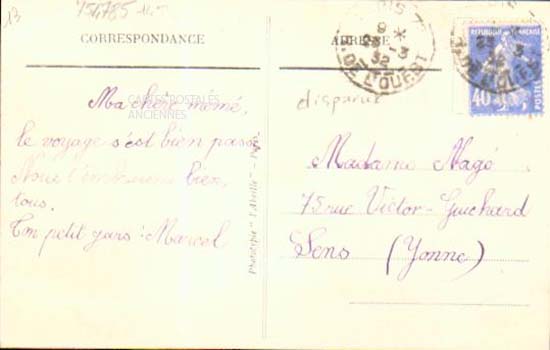 13
CORRESPONDANCE
ADRESSE
Ma chère mémé,
le voyage s'est bien passé
Nous t'embrassons bien,
tous.
Ton petit gars : Marcel
Phototypie "l'Abeille" - Paris
disparue
Madame Magé
75 rue Victor-Guichard
Sens (Yonne)
DE L'OUEST
REPUBLIQUE FRANÇAISE
40
POSTES
CARTES POSTALES
ANCIENNES